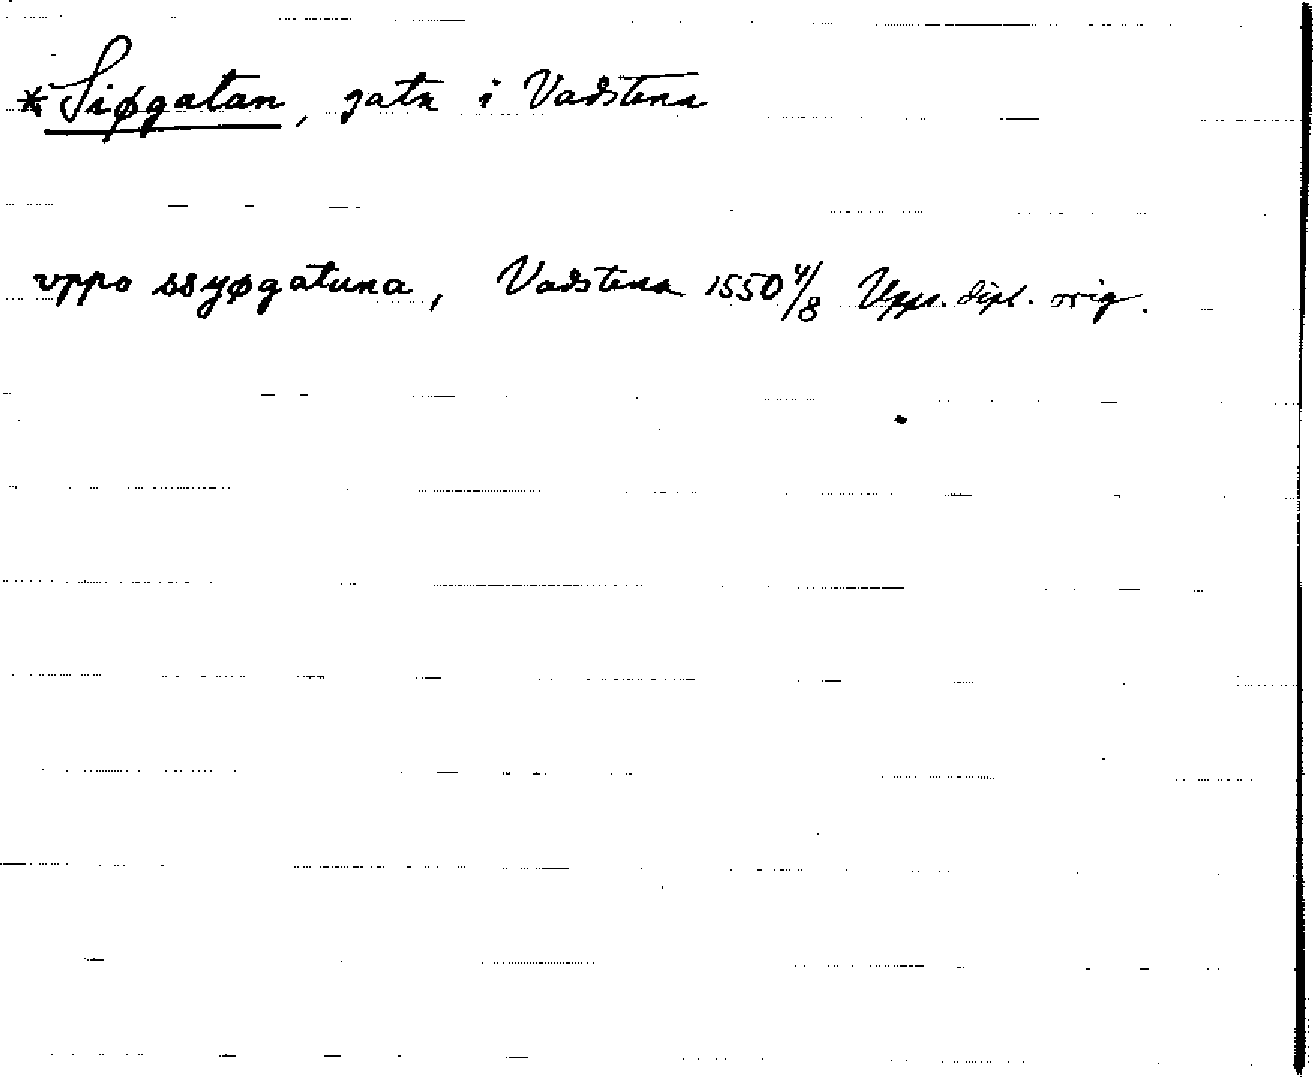 *Siøgatan, gata i Vadstena
vppo ssyøgatuna, Vadstena 1550 4/8 Upps. dipl. orig.